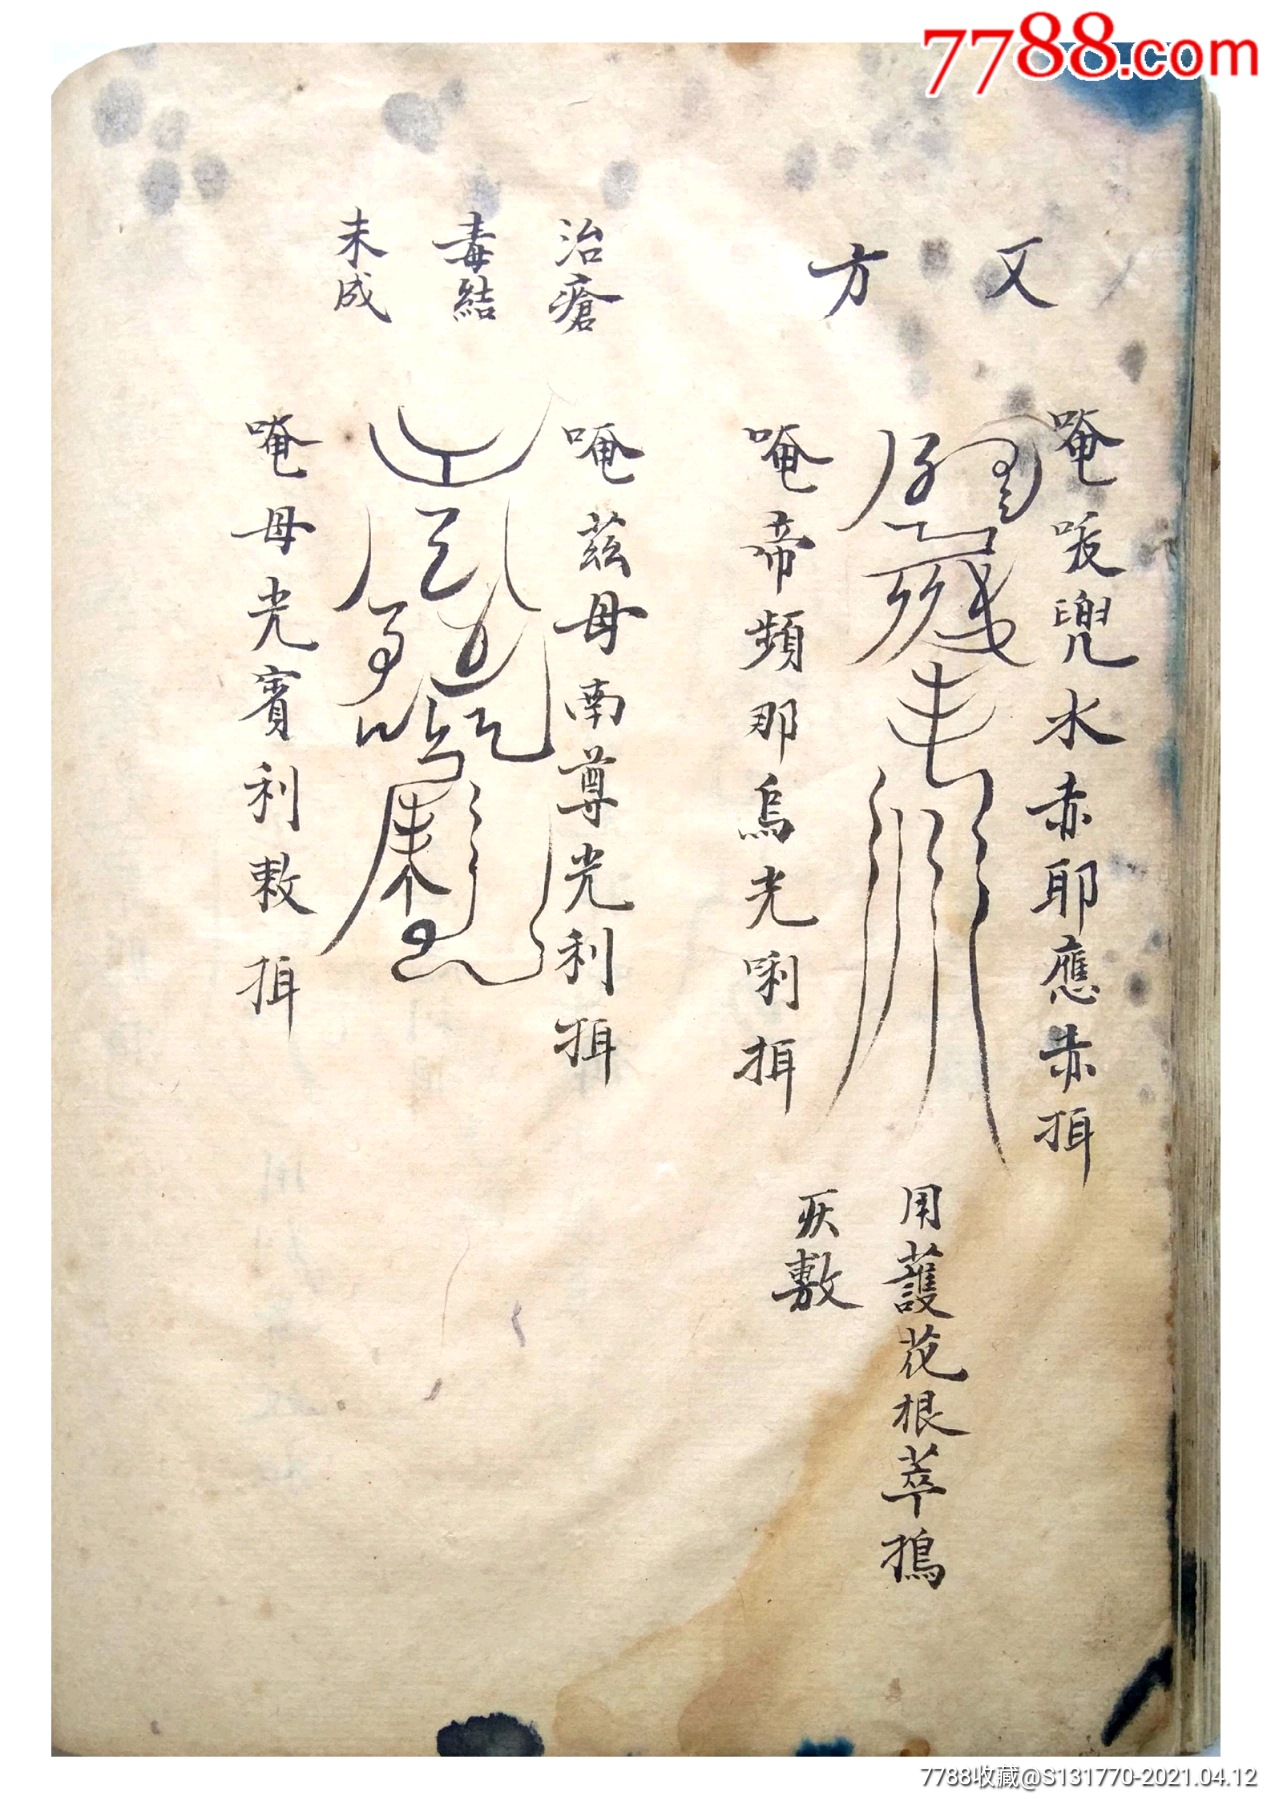 7788.com
又
方
唵㖟兜水赤耶應赤揖
唵帝頻那烏光唎揖
用蒦花根萃搗
灰敷
治瘡
毒結
未成
唵茲母南尊光利揖
唵母光賓利敕揖
7788收藏@S131770-2021.04.12